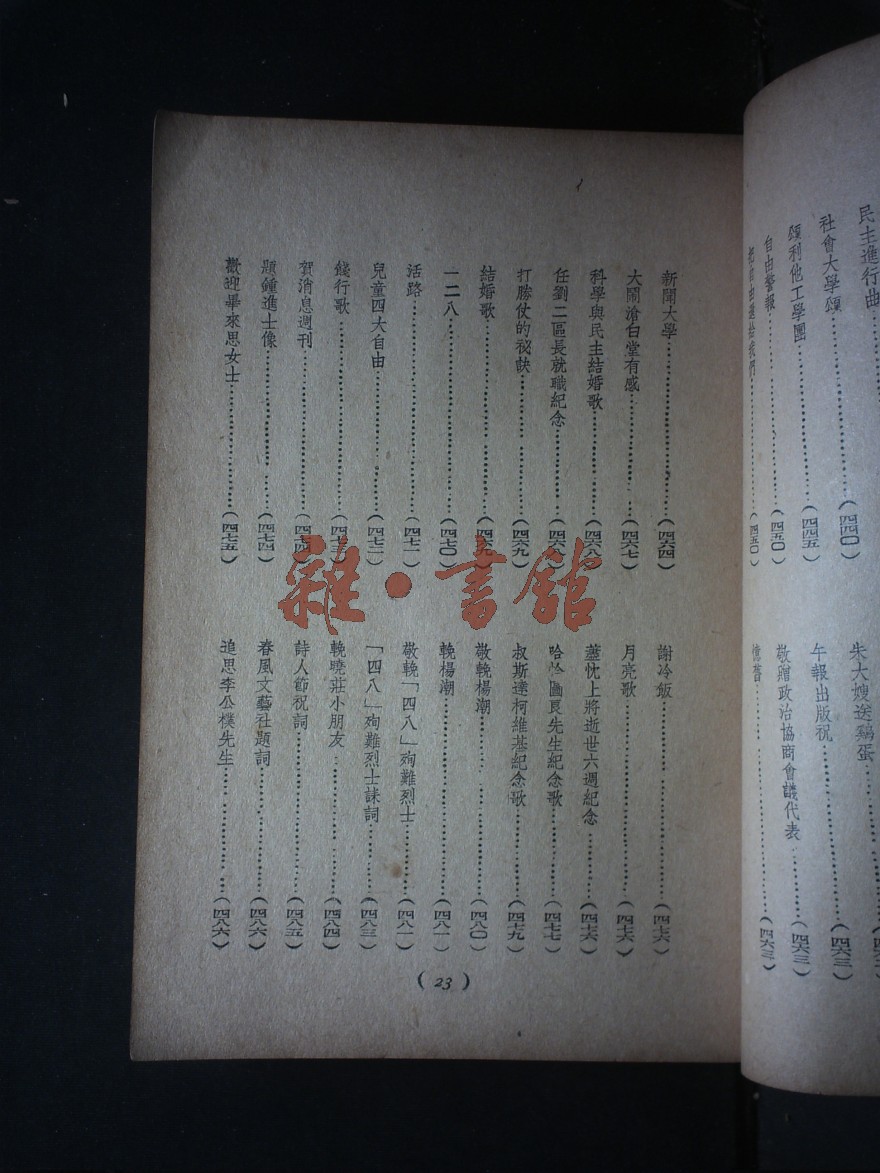 民主進行曲
社會大學頌……(四四〇)
頌利他工學團……(四四五)
自由警報……(四五〇)
把自由還給我們……(四五〇)
朱大嫂送鷄蛋
午報出版祝……(四六三)
敬贈政治協商會議代表……(四六三)
憶舊……(四六三)
新聞大學……(四六四)
大鬧滄白堂有感……(四六七)
科學與民主結婚歌……(四六八)
任劉二區長就職紀念……(四六八)
打勝仗的祕訣……(四六九)
結婚歌……(四六九)
一二八……(四七〇)
活路……(四七一)
兒童四大自由……(四七二)
餞行歌……(四七三)
賀消息週刊……(四七四)
題鍾進士像……(四七四)
歡迎畢來思女士……(四七五)
謝冷飯……(四七六)
月亮歌……(四七六)
蓋忱上將逝世六週紀念……(四七六)
哈恰圖良先生紀念歌……(四七七)
叔斯達柯維基紀念歌……(四七九)
敬輓楊潮……(四八〇)
輓楊潮……(四八一)
敬輓「四八」殉難烈士……(四八一)
「四八」殉難烈士誄詞……(四八三)
輓曉莊小朋友……(四八四)
詩人節祝詞……(四八五)
春風文藝社題詞……(四八六)
追思李公樸先生……(四八六)
(23)
雜·書館